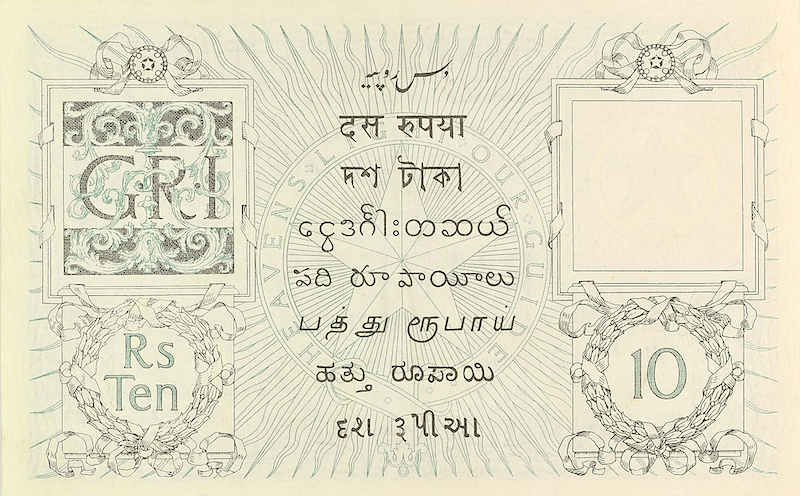 دس روپیہ
दस रुपया
দশ টাকা
ငွေဒင်္ဂါးတဆယ်
పది రూపాయీలు
பத்து ரூபாய்
ಹತ್ತು ರೂಪಾಯಿ
દશ રૂપીઆ
HEAVENS OUR GUIDE
GRI
Rs
Ten
10